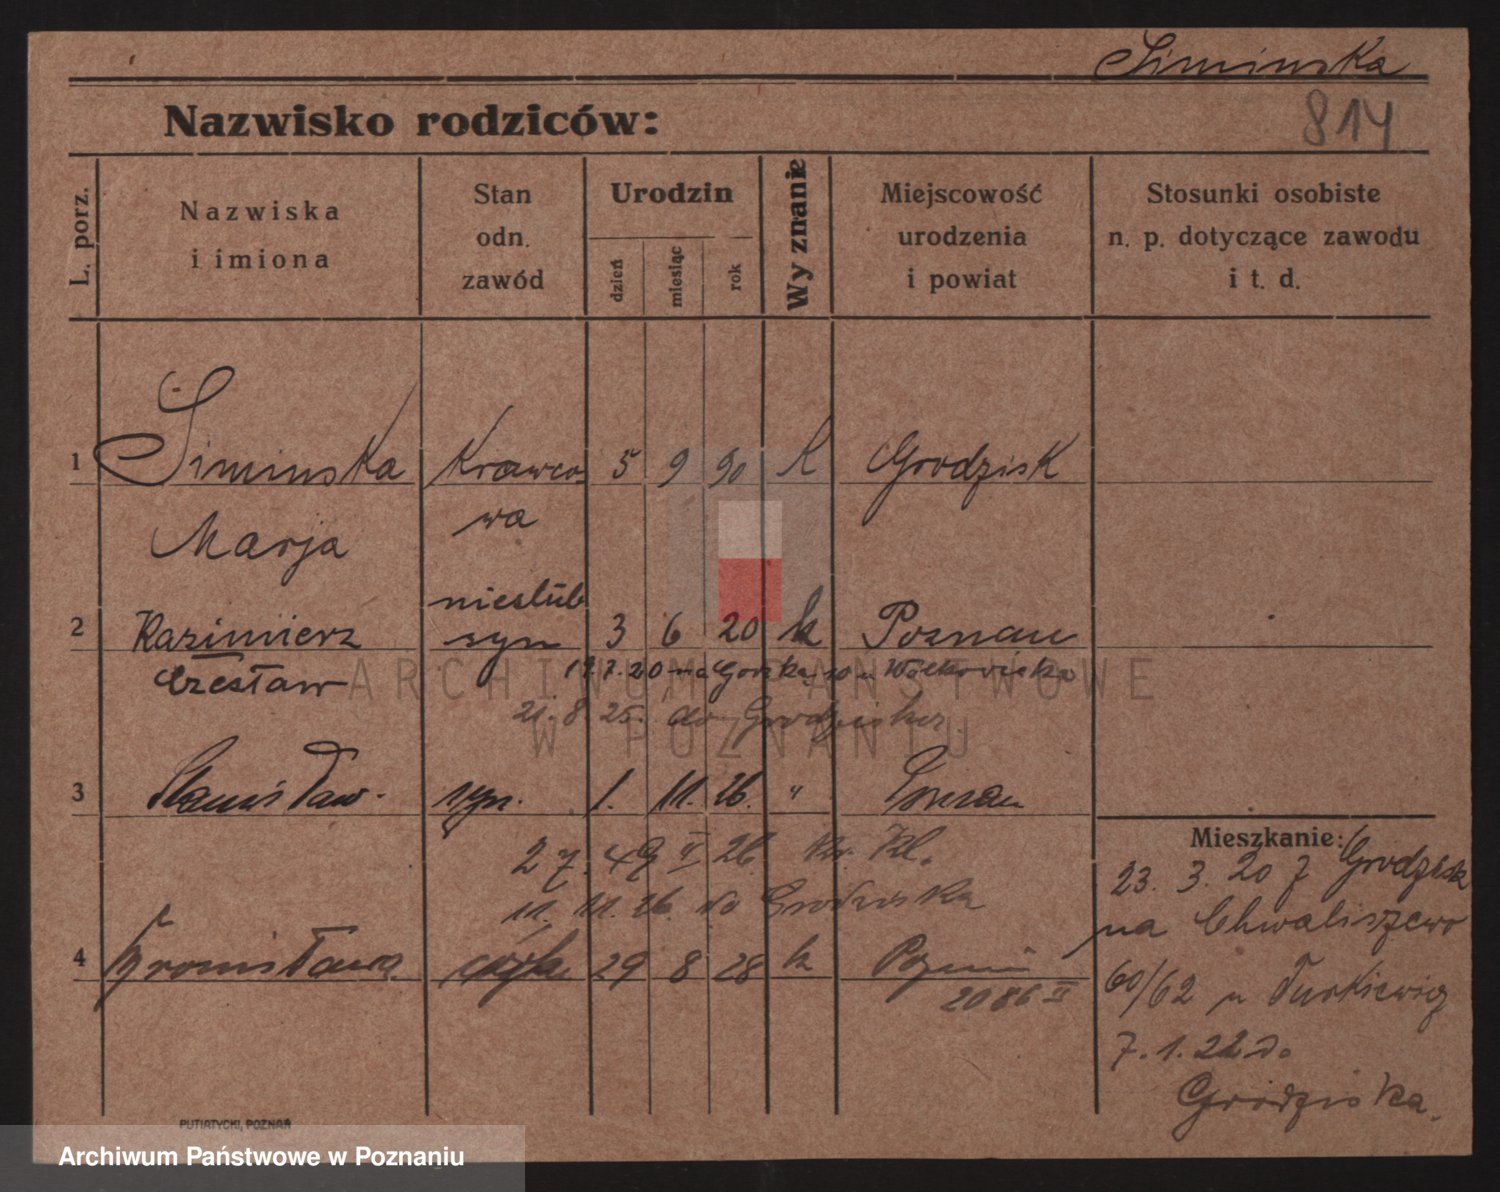 Siminska
814
Nazwisko rodziców:
L. porz.
Nazwiska
i imiona
Stan
odn.
zawód
Urodzin
dzień
miesiąc
rok
Wyznanie
Miejscowość
urodzenia
i powiat
Stosunki osobiste
n. p. dotyczące zawodu
i t. d.
1 Siminska Krawco 5 9 90 k Grodzisk
Marja wa
nieślub
2 Kazimierz syn 3 6 20 k Poznań
Czesław 17.7.20 na Gorską 10 u
21.8.25. do Grodziska
3 Stanisław. syn. 1. 11. 26. "
27. 49 II 26. Kr. Kl.
11. 11. 26. do Grodziska
4 Bronisława córka 29 8 28 k Poznań
2086 II
Mieszkanie:
23. 3. 20 z Grodzisk
na Chwaliszewo
60/62 u Turkiewicz
7. 1. 22 do
Grodziska.
PUTIATYCKI, POZNAŃ
ARCHIWUM PAŃSTWOWE
W POZNANIU
Archiwum Państwowe w Poznaniu